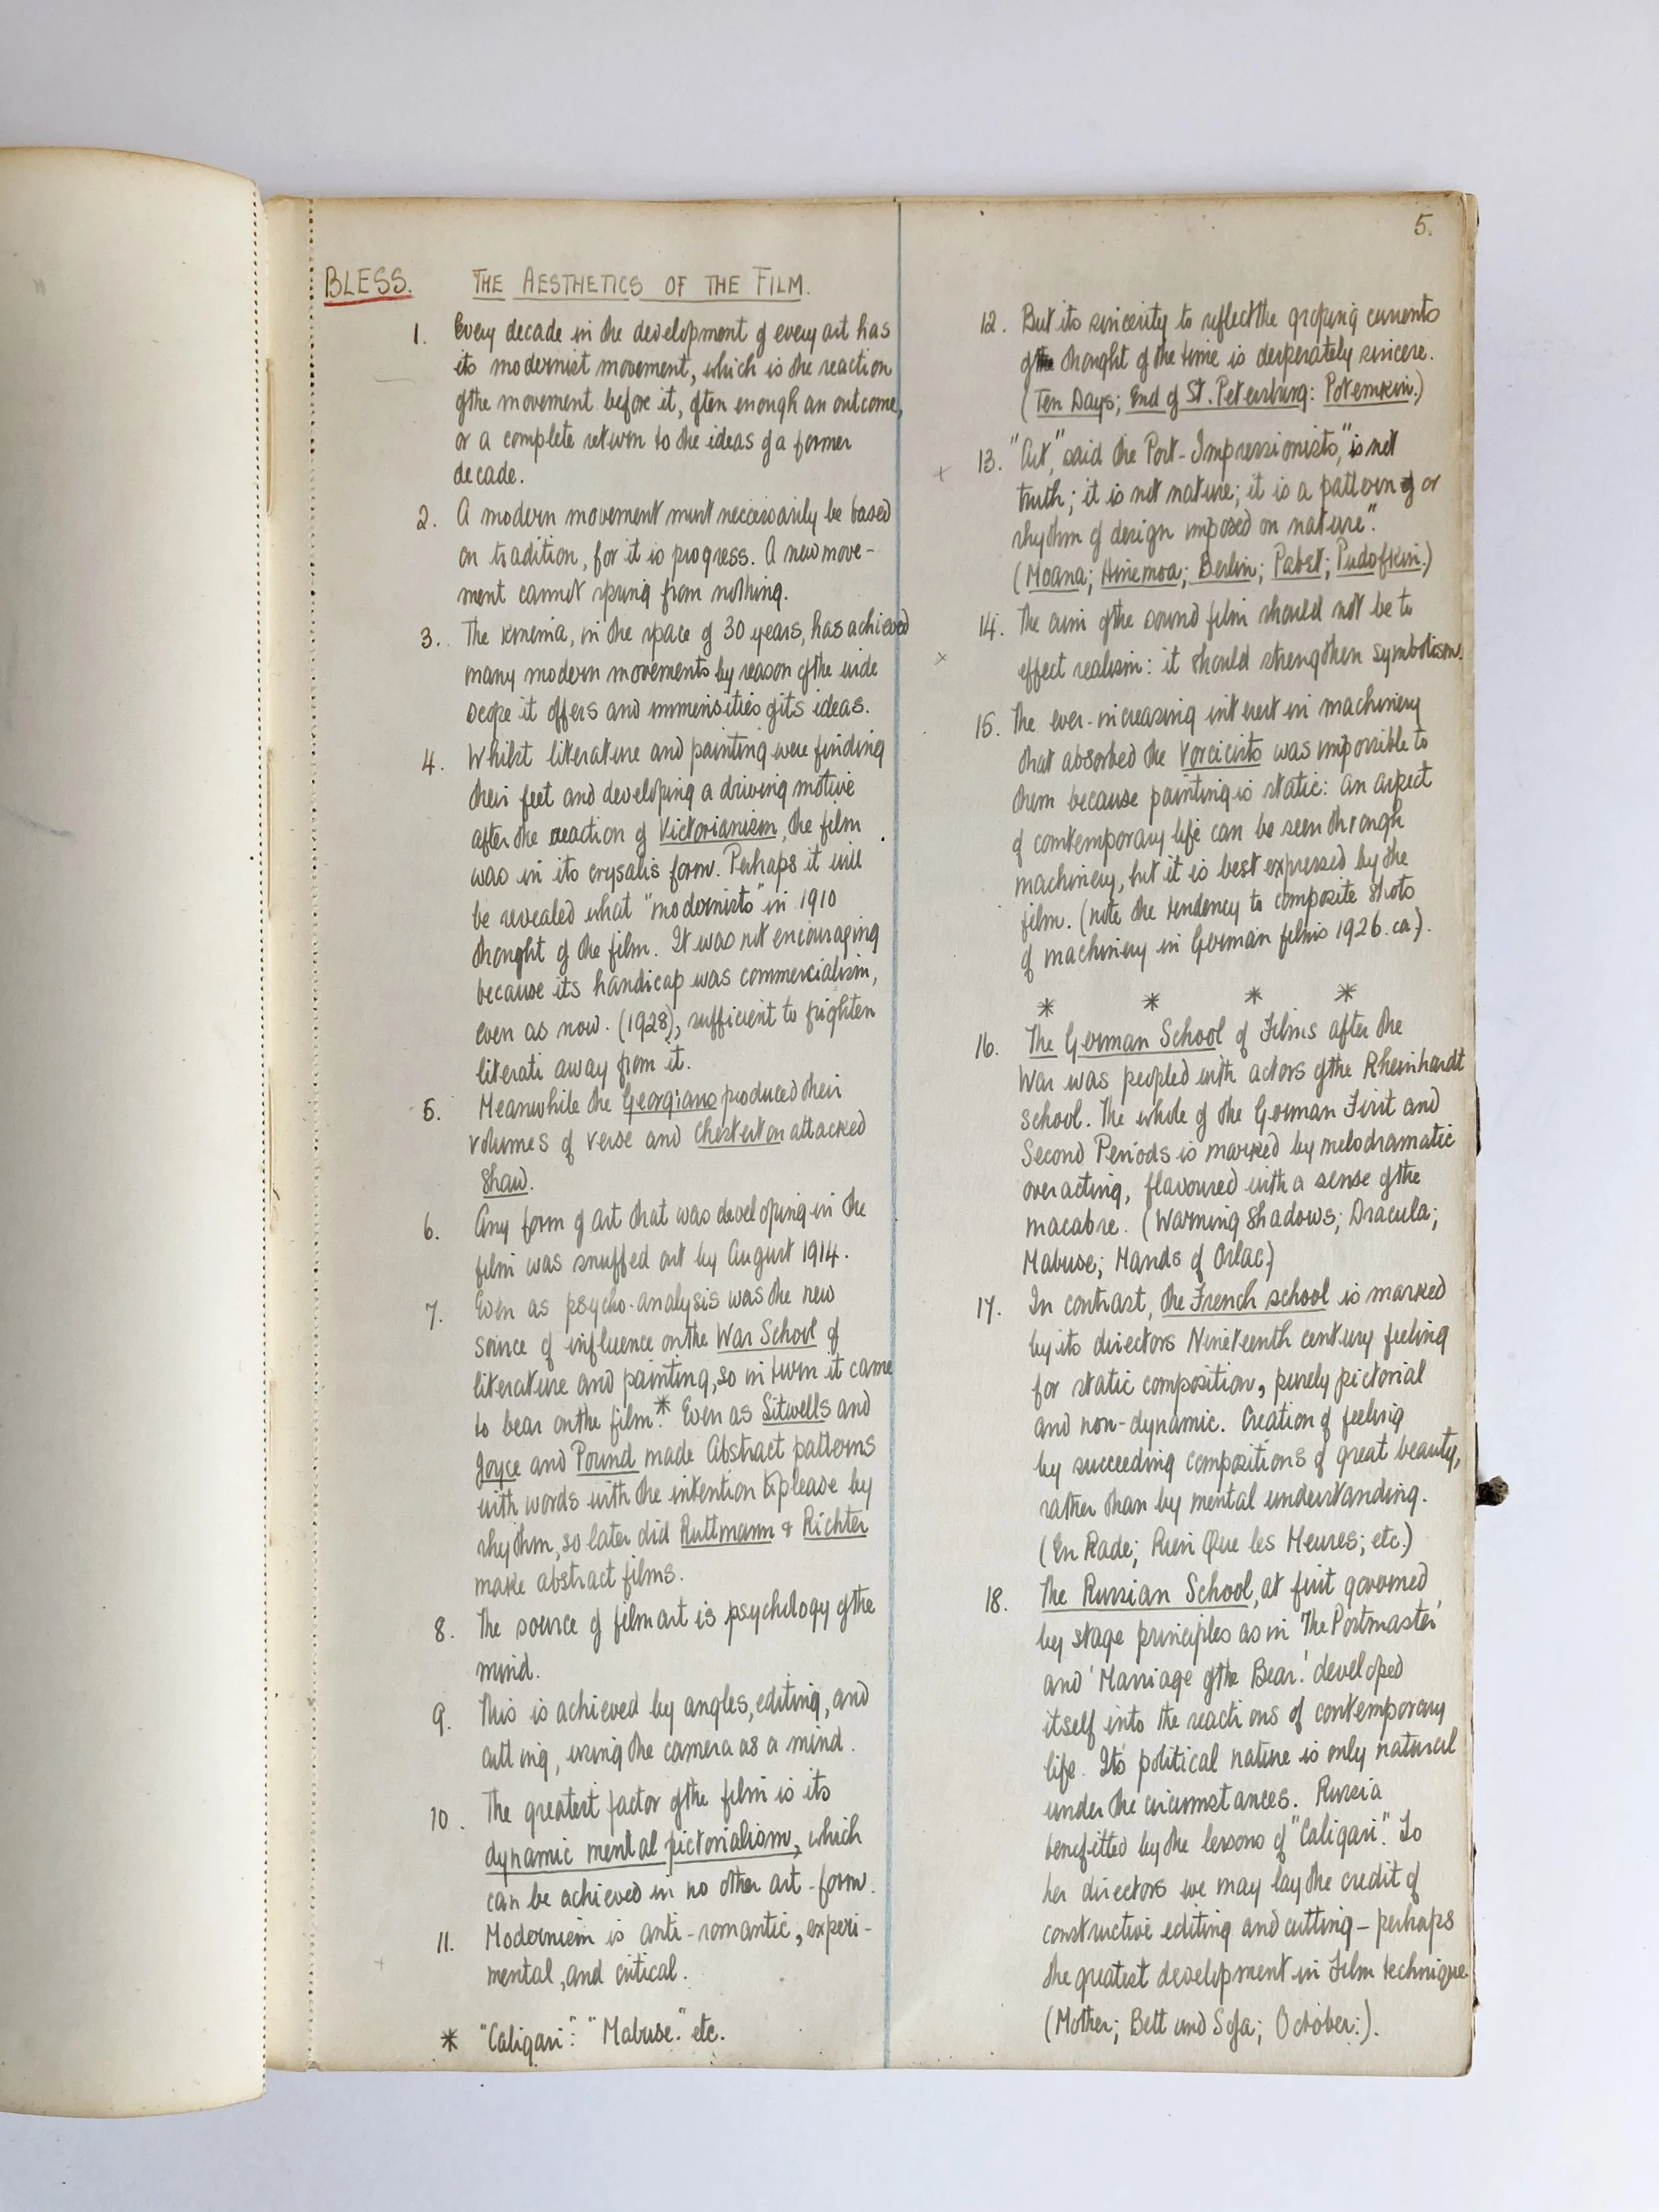 5.
BLESS. THE AESTHETICS OF THE FILM.
1. Every decade in the development of every art has
its modernist movement, which is the reaction
of the movement before it, often enough an outcome,
or a complete return to the ideas of a former
decade.
2. A modern movement must neccessarily be based
on tradition, for it is progress. A new move-
ment cannot spring from nothing.
3. The kinema, in the space of 30 years, has achieved
many modern movements by reason of the wide
scope it offers and immensities of its ideas.
4. Whilst literature and painting were finding
their feet and developing a driving motive
after the reaction of Victorianism, the film
was in its crysalis form. Perhaps it will
be revealed what "modernists" in 1910
thought of the film. It was not encouraging
because its handicap was commercialism,
even as now. (1928), sufficient to frighten
literati away from it.
5. Meanwhile the Georgians produced their
volumes of verse and Chesterton attacked
Shaw.
6. Any form of art that was developing in the
film was snuffed out by August 1914.
7. Even as psycho-analysis was the new
source of influence on the War School of
literature and painting, so in turn it came
to bear on the film.* Even as Sitwells and
Joyce and Pound made Abstract patterns
with words with the intention to please by
rhythm, so later did Ruttmann & Richter
make abstract films.
8. The source of film art is psychology of the
mind.
9. This is achieved by angles, editing, and
cutting, using the camera as a mind.
10. The greatest factor of the film is its
dynamic mental pictorialism, which
can be achieved in no other art-form.
11. Modernism is anti-romantic, experi-
mental, and critical.
* "Caligari": "Mabuse." etc.
12. But its sincerity to reflect the groping currents
of the thought of the time is desperately sincere.
(Ten Days; End of St. Petersburg: Potemkin.)
x 13. "Art," said the Post-Impressionists, "is not
truth; it is not nature; it is a pattern or
rhythm of design imposed on nature".
(Moana; Hinemoa; Berlin; Pabst; Pudofkin.)
14. The aim of the sound film should not be to
x effect realism: it should strengthen symbolism.
15. The ever-increasing interest in machinery
that absorbed the Vorcicists was impossible to
them because painting is static: an aspect
of comtemporary life can be seen through
machinery, but it is best expressed by the
film. (note the tendency to composite shots
of machinery in German films 1926. ca).
* * * *
16. The German School of Films after the
War was peopled with actors of the Rheinhardt
school. The whole of the German First and
Second Periods is marked by melodramatic
overacting, flavoured with a sense of the
macabre. (Warning Shadows; Dracula;
Mabuse; Hands of Orlac)
17. In contrast, the French school is marked
by its directors Nineteenth century feeling
for static composition, purely pictorial
and non-dynamic. Creation of feeling
by succeeding compositions of great beauty,
rather than by mental understanding.
(En Rade; Rien Que les Heures; etc.)
18. The Russian School, at first governed
by stage principles as in 'The Postmaster'
and 'Marriage of the Bear.' developed
itself into the reactions of contemporary
life. Its political nature is only natural
under the circumstances. Russia
benefitted by the lessons of "Caligari". To
her directors we may lay the credit of
constructive editing and cutting - perhaps
the greatest development in Film technique.
(Mother; Bett und Sofa; October:).